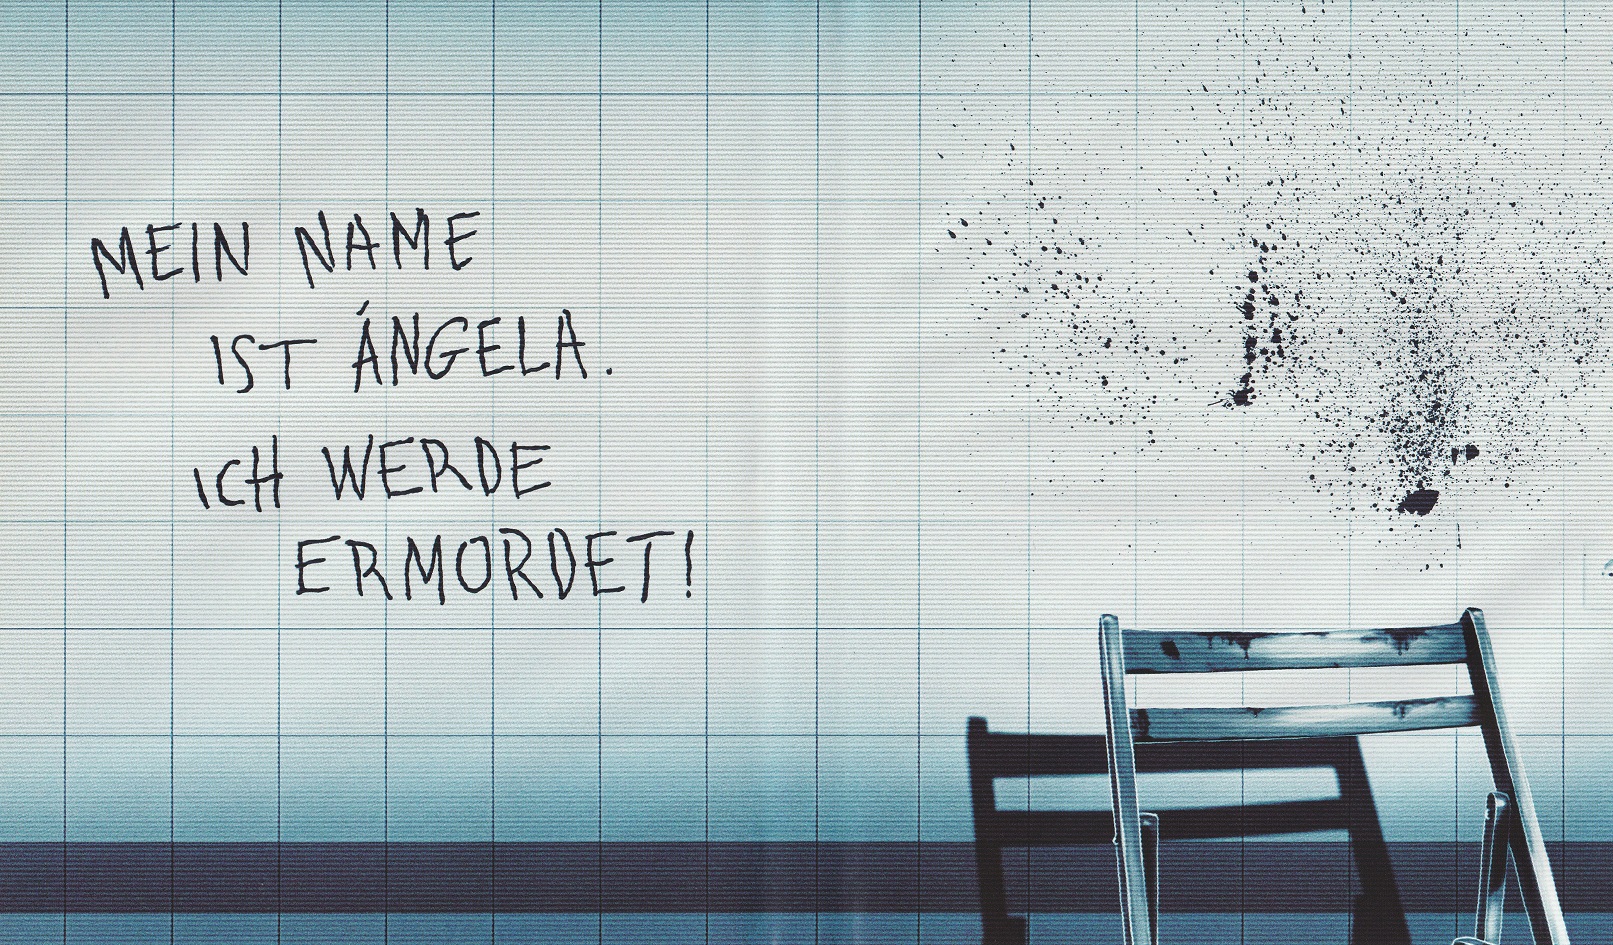 MEIN NAME
IST ÁNGELA.
ICH WERDE
ERMORDET!